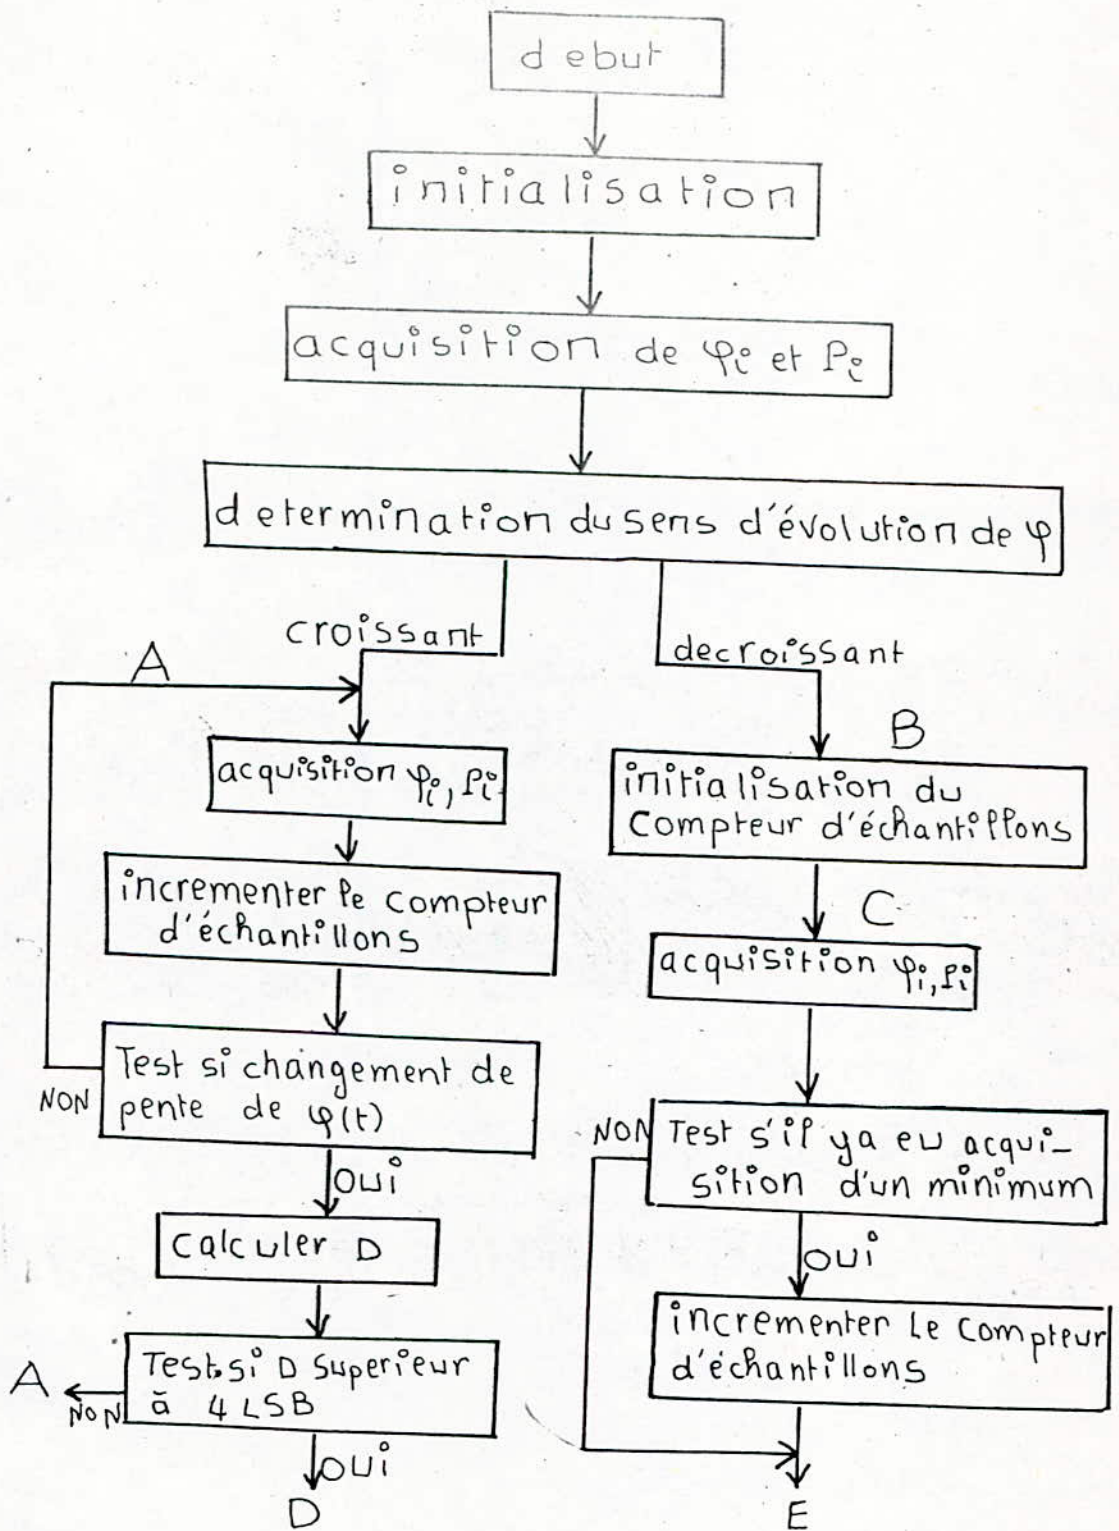 debut
initialisation
acquisition de φi et Pi
determination du sens d'évolution de φ
croissant
decroissant
A
acquisition φi, Pi
incrementer le compteur
d'échantillons
Test si changement de
pente de φ(t)
NON
OUi
calculer D
Test si D Superieur
à 4 LSB
A
NON
OUi
D
B
initialisation du
Compteur d'échantillons
C
acquisition φi, Pi
NON
Test s'il ya eu acqui-
sition d'un minimum
OUi
incrementer Le compteur
d'échantillons
E